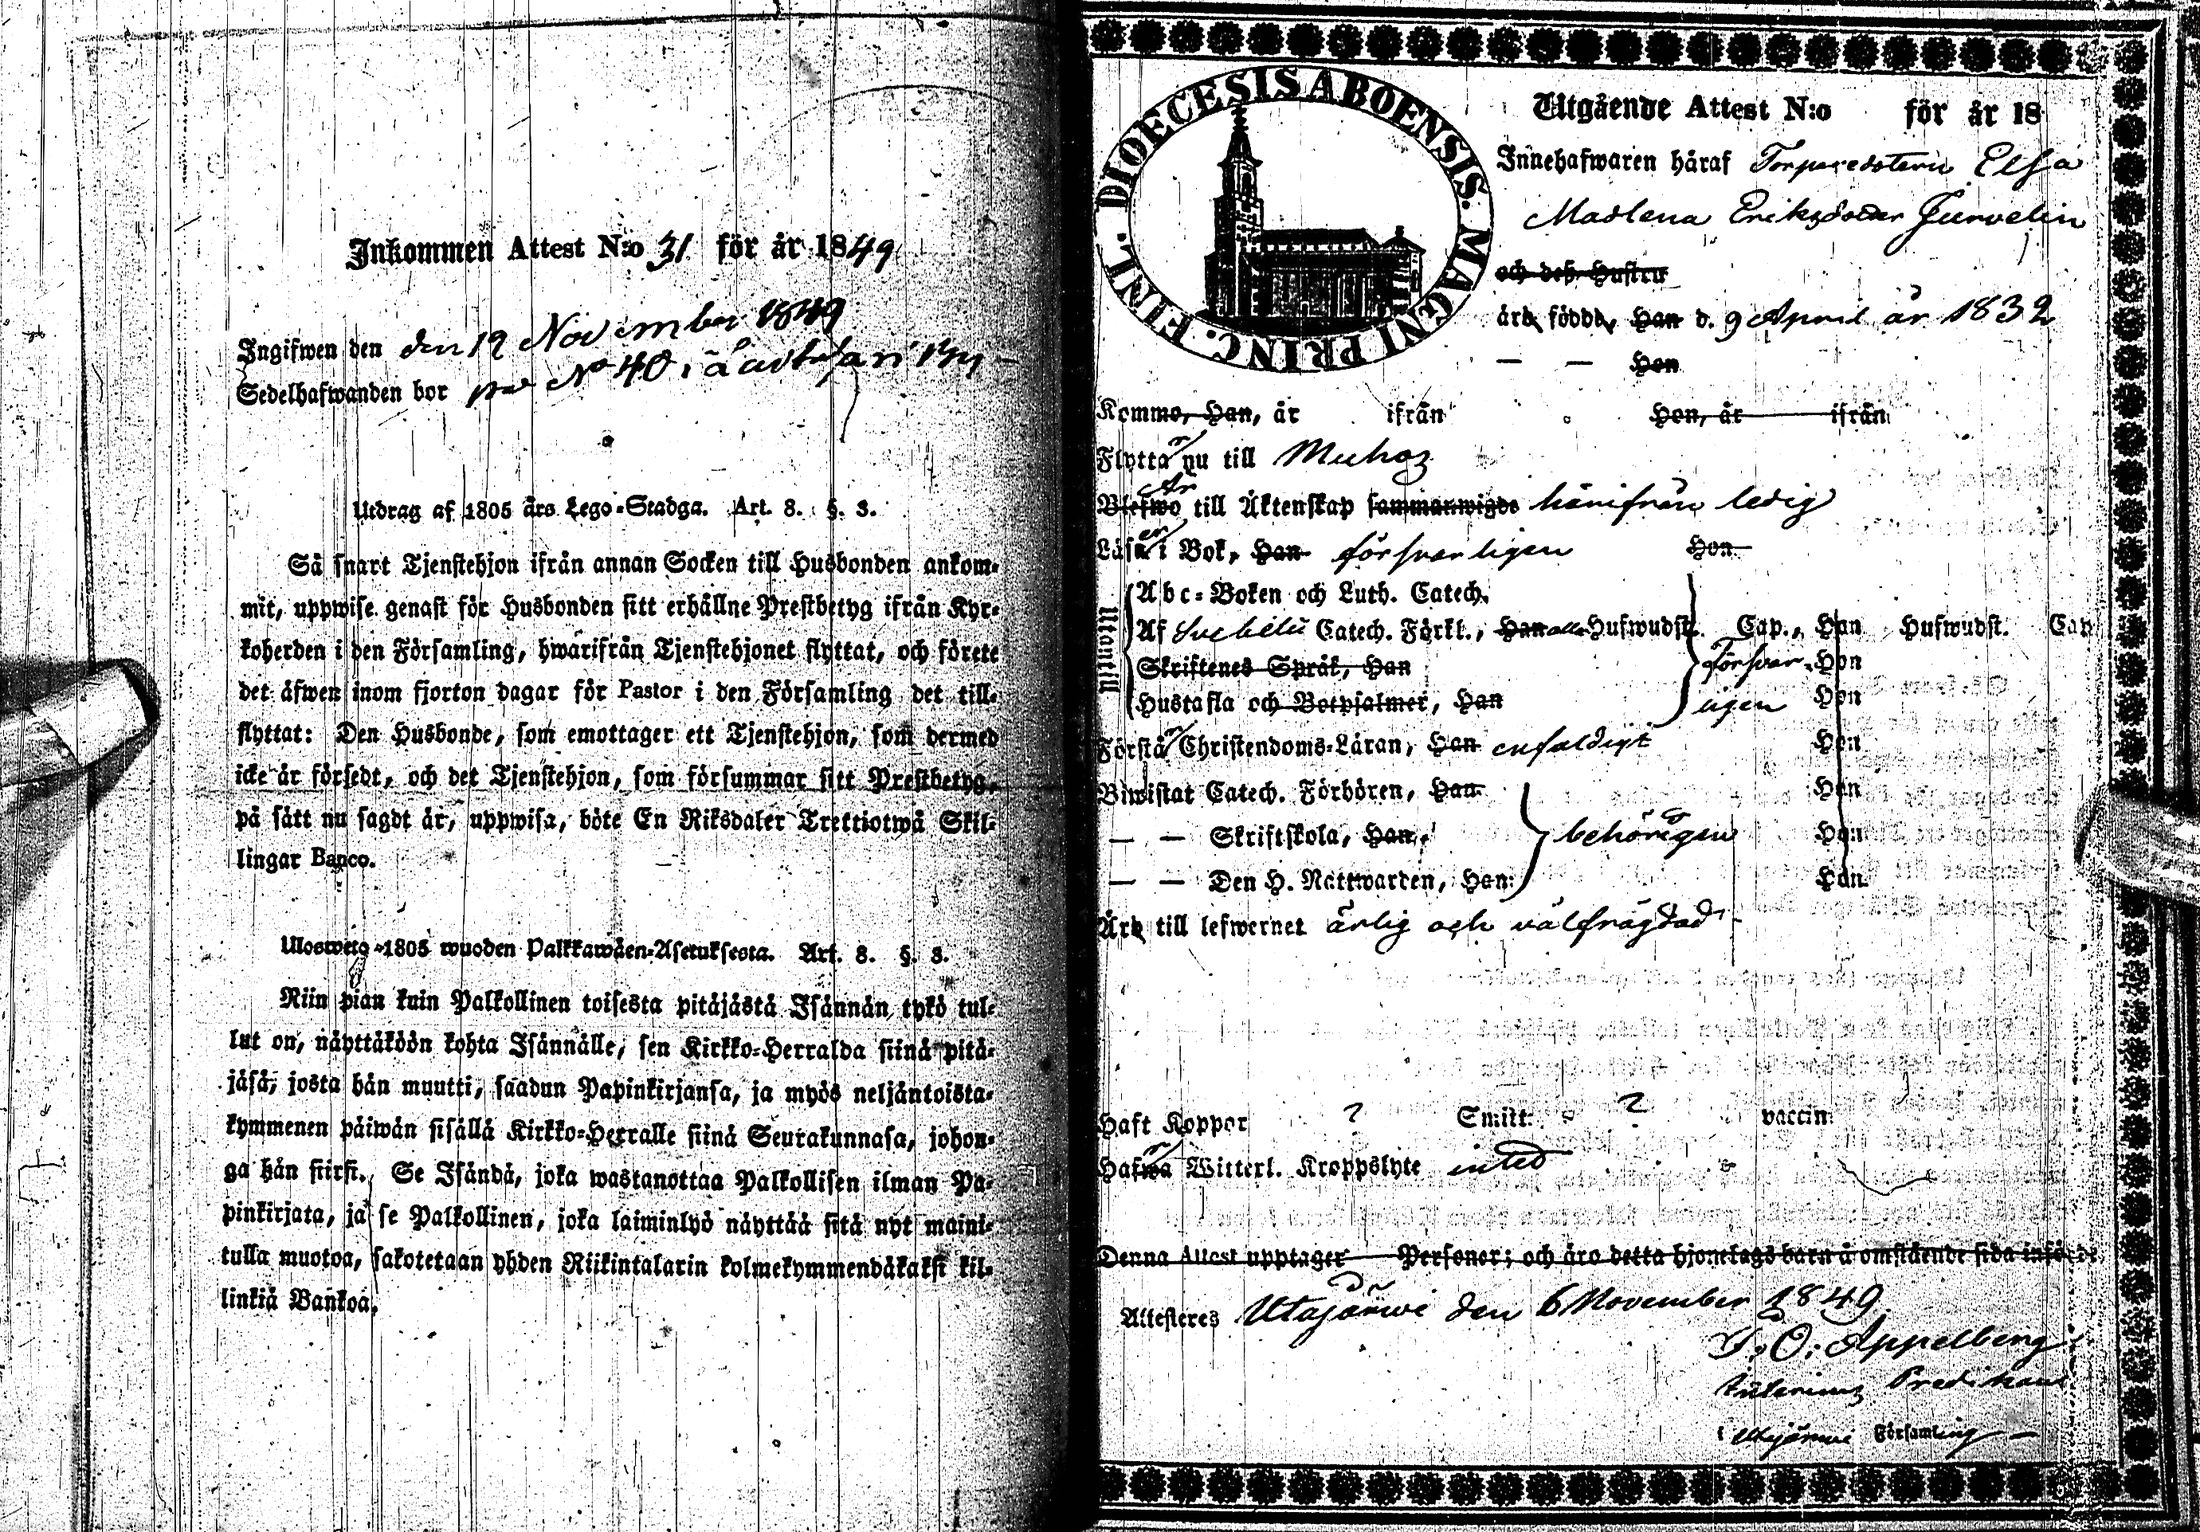 Inkommen Attest N:o 31 för år 1849
Ingifwen den den 19 November 1849
Sedelhafwanden bor på No 40 i
Utdrag af 1805 års Lego-Stadga. Art. 8. §. 3.
Så snart Tjenstehjon ifrån annan Socken till Husbonden ankom-
mit, uppwise genast för Husbonden sitt erhållne Prestbetyg ifrån Kyr-
koherden i den Församling, hwarifrån Tjenstehjonet flyttat, och förete
det äfwen inom fjorton dagar för Pastor i den Församling det till-
flyttat: Den Husbonde, som emottager ett Tjenstehjon, som dermed
icke är försedt, och det Tjenstehjon, som försummar sitt Prestbetyg,
på sätt nu sagdt är, uppwisa, böte En Riksdaler Trettiotwå Skil-
lingar Banco.
Uloswetg 1805 wuoden Palkkawäen-Asetuksesta. Art. 8. §. 3.
Niin pian kuin Palkollinen toisesta pitäjästä Isännän tykö tul-
lut on, näyttäköön kohta Isännälle, sen Kirkko-Herralda siinä pitä-
jäsä, josta hän muutti, saadun Papinkirjansa, ja myös neljäntoista-
kymmenen päiwän sisällä Kirkko-Herralle siinä Seurakunnasa, johon-
ga hän siirsi. Se Isändä, joka wastanottaa Palkollisen ilman Pa-
pinkirjata, ja se Palkollinen, joka laiminlyö näyttää sitä nyt maini-
tulla muotoa, sakotetaan yhden Riikintalarin kolmekymmendäkaksi kil-
linkiä Bankoa.
DIOECESIS ABOENSIS. MAGNI PRINC. FINL.
Utgående Attest N:o för år 18
Innehafwaren häraf Elsa
Madlena Eriksdotter Jurvelin
och deß Hustru
äro födde, Han d. 9 April år 1832
— — Hon
Komme, Han, år ifrån Hon, år ifrån
Flyttar nu till Muhos
Blefwo Är till Äktenskap sammanwigde härifrån ledig
Läser i Bok, Han försvarligen Hon
Utantill
Abc-Boken och Luth. Catech.
Af Svebelii Catech. Förkl., Han alla Hufwudst. Cap., Han Hufwudst. Cap
Skriftenes Språk, Han försvar- Hon
Hustafla och Botpsalmer, Han ligen Hon
Förstår Christendoms-Läran, Han enfaldigt Hon
Biwistat Catech. Förhören, Han Hon
— — Skriftskola, Han behörigen Hon
— — Den H. Nattwarden, Han Hon
Äro till lefwernet ärlig och välfrägdad
Haft Koppor ? Smitt. ? vaccin.
Hafwa Witterl. Kroppslyte intet
Denna Attest upptager Personer; och äro detta hjonelags barn å omstående sida införde
Attesteres Utajärwi den 6 November 1849
J. O. Appelberg
Predikant
i Utajärwi Församling